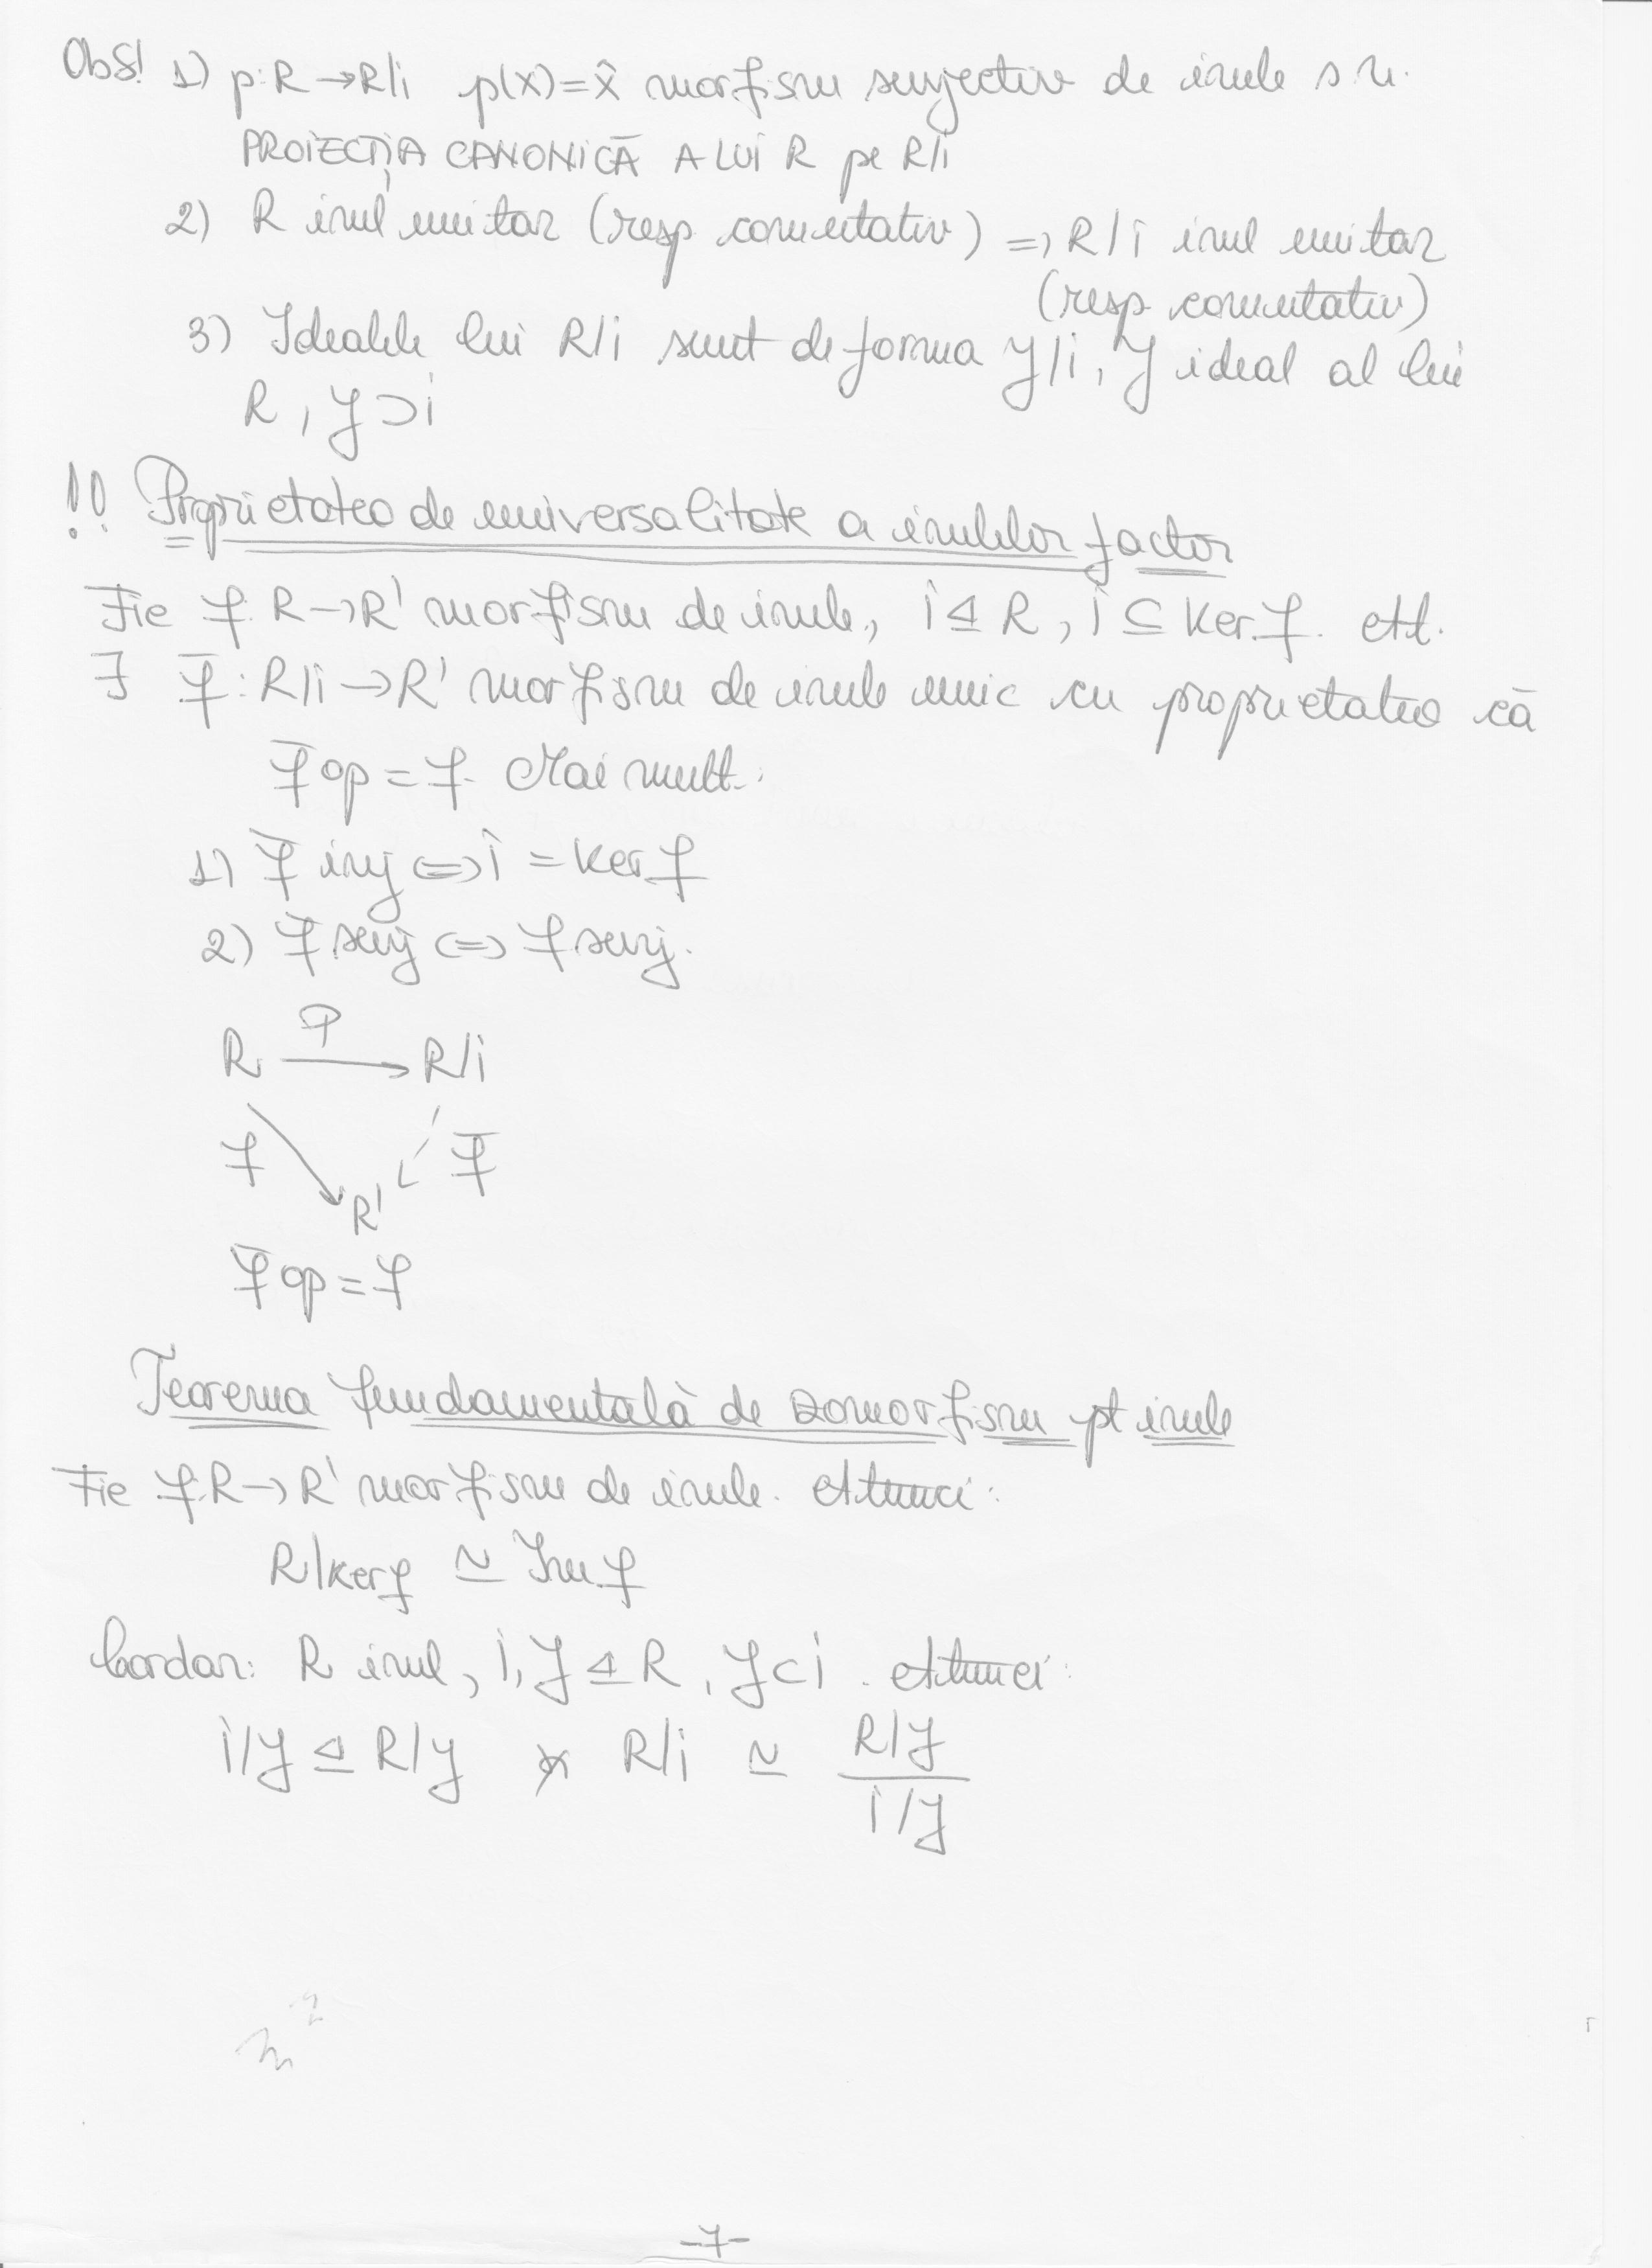 Obs! 1) p: R → R/i p(x) = x̂ morfism surjectiv de inele s.n.
PROIECȚIA CANONICĂ A LUI R pe R/i
2) R inel unitar (resp comutativ) => R/i inel unitar
(resp comutativ)
3) Idealele lui R/i sunt de forma J/i, J ideal al lui
R, J ⊃ i
!! Proprietatea de universalitate a inelelor factor
Fie f: R → R' morfism de inele, i ⊴ R, i ⊆ Ker f. At.
∃ f̄: R/i → R' morfism de inele unic cu proprietatea că
f̄ ∘ p = f. Mai mult:
1) f̄ inj <=> i = Ker f
2) f̄ surj <=> f surj.
p
R → R/i
f f̄
R'
f̄ ∘ p = f
Teorema fundamentală de izomorfism pt inele
Fie f: R → R' morfism de inele. Atunci:
R/Ker f ≃ Im f
Corolar: R inel, i, J ⊴ R, J ⊂ i. Atunci:
i/J ⊴ R/J și R/i ≃ (R/J)/(i/J)
-7-